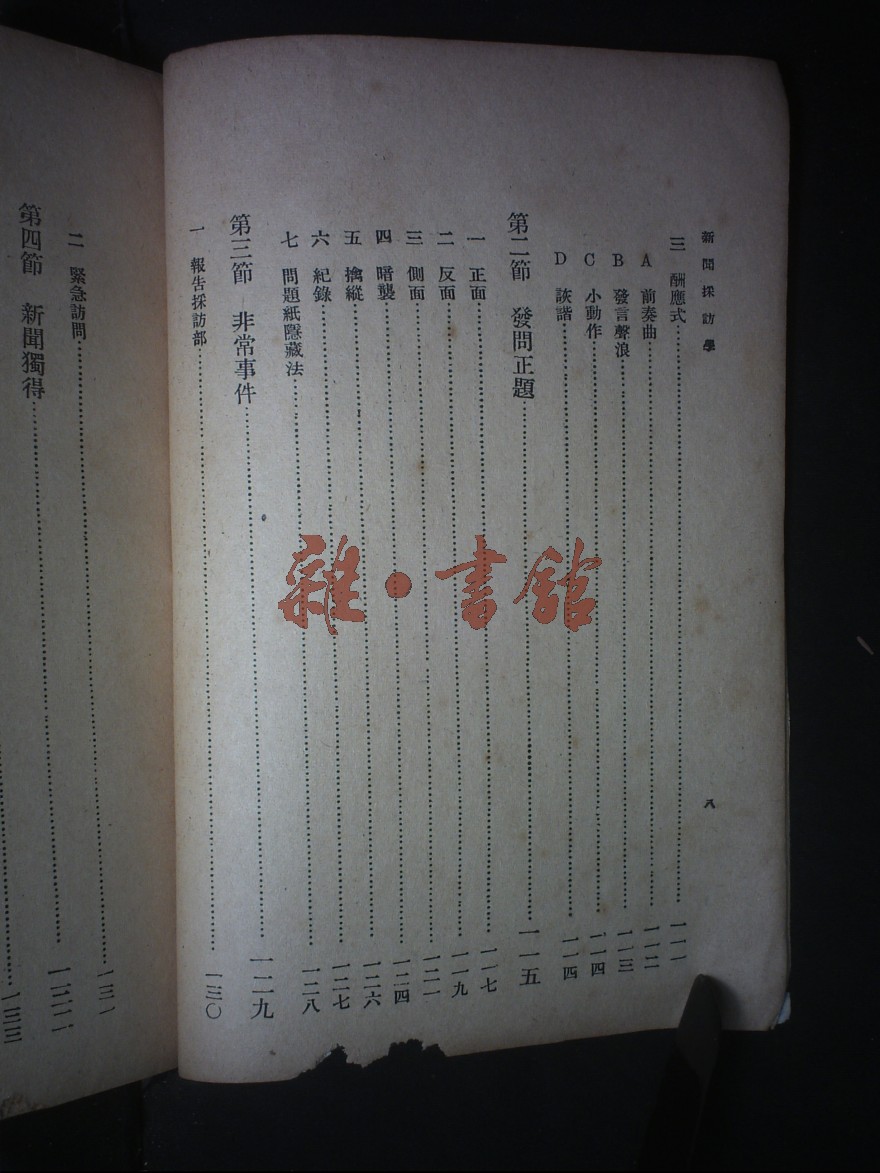 新聞採訪學 八
三 酬應式……一一一
A 前奏曲……一一二
B 發言聲浪……一一三
C 小動作……一一四
D 詼諧……一一四
第二節 發問正題……一一五
一 正面……一一七
二 反面……一一九
三 側面……一二一
四 暗襲……一二四
五 擒縱……一二六
六 紀錄……一二七
七 問題紙隱藏法……一二八
第三節 非常事件……一二九
一 報告採訪部……一三〇
二 緊急訪問……一三一
第四節 新聞獨得……一三二
……一三三
雜·書館